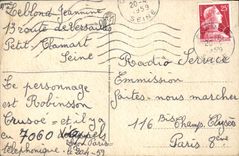 Leblond Jeannine
8 route de Versailles
Petit Clamart
Seine
Le personnage
est Robinsson
Crusoe = et il y a
eu 7060 appels
téléphonique
Radio Service
Emmission
Faites-nous marcher
116 bis Champs Elysées
Paris 8e
20-
1959
SEINE
25F